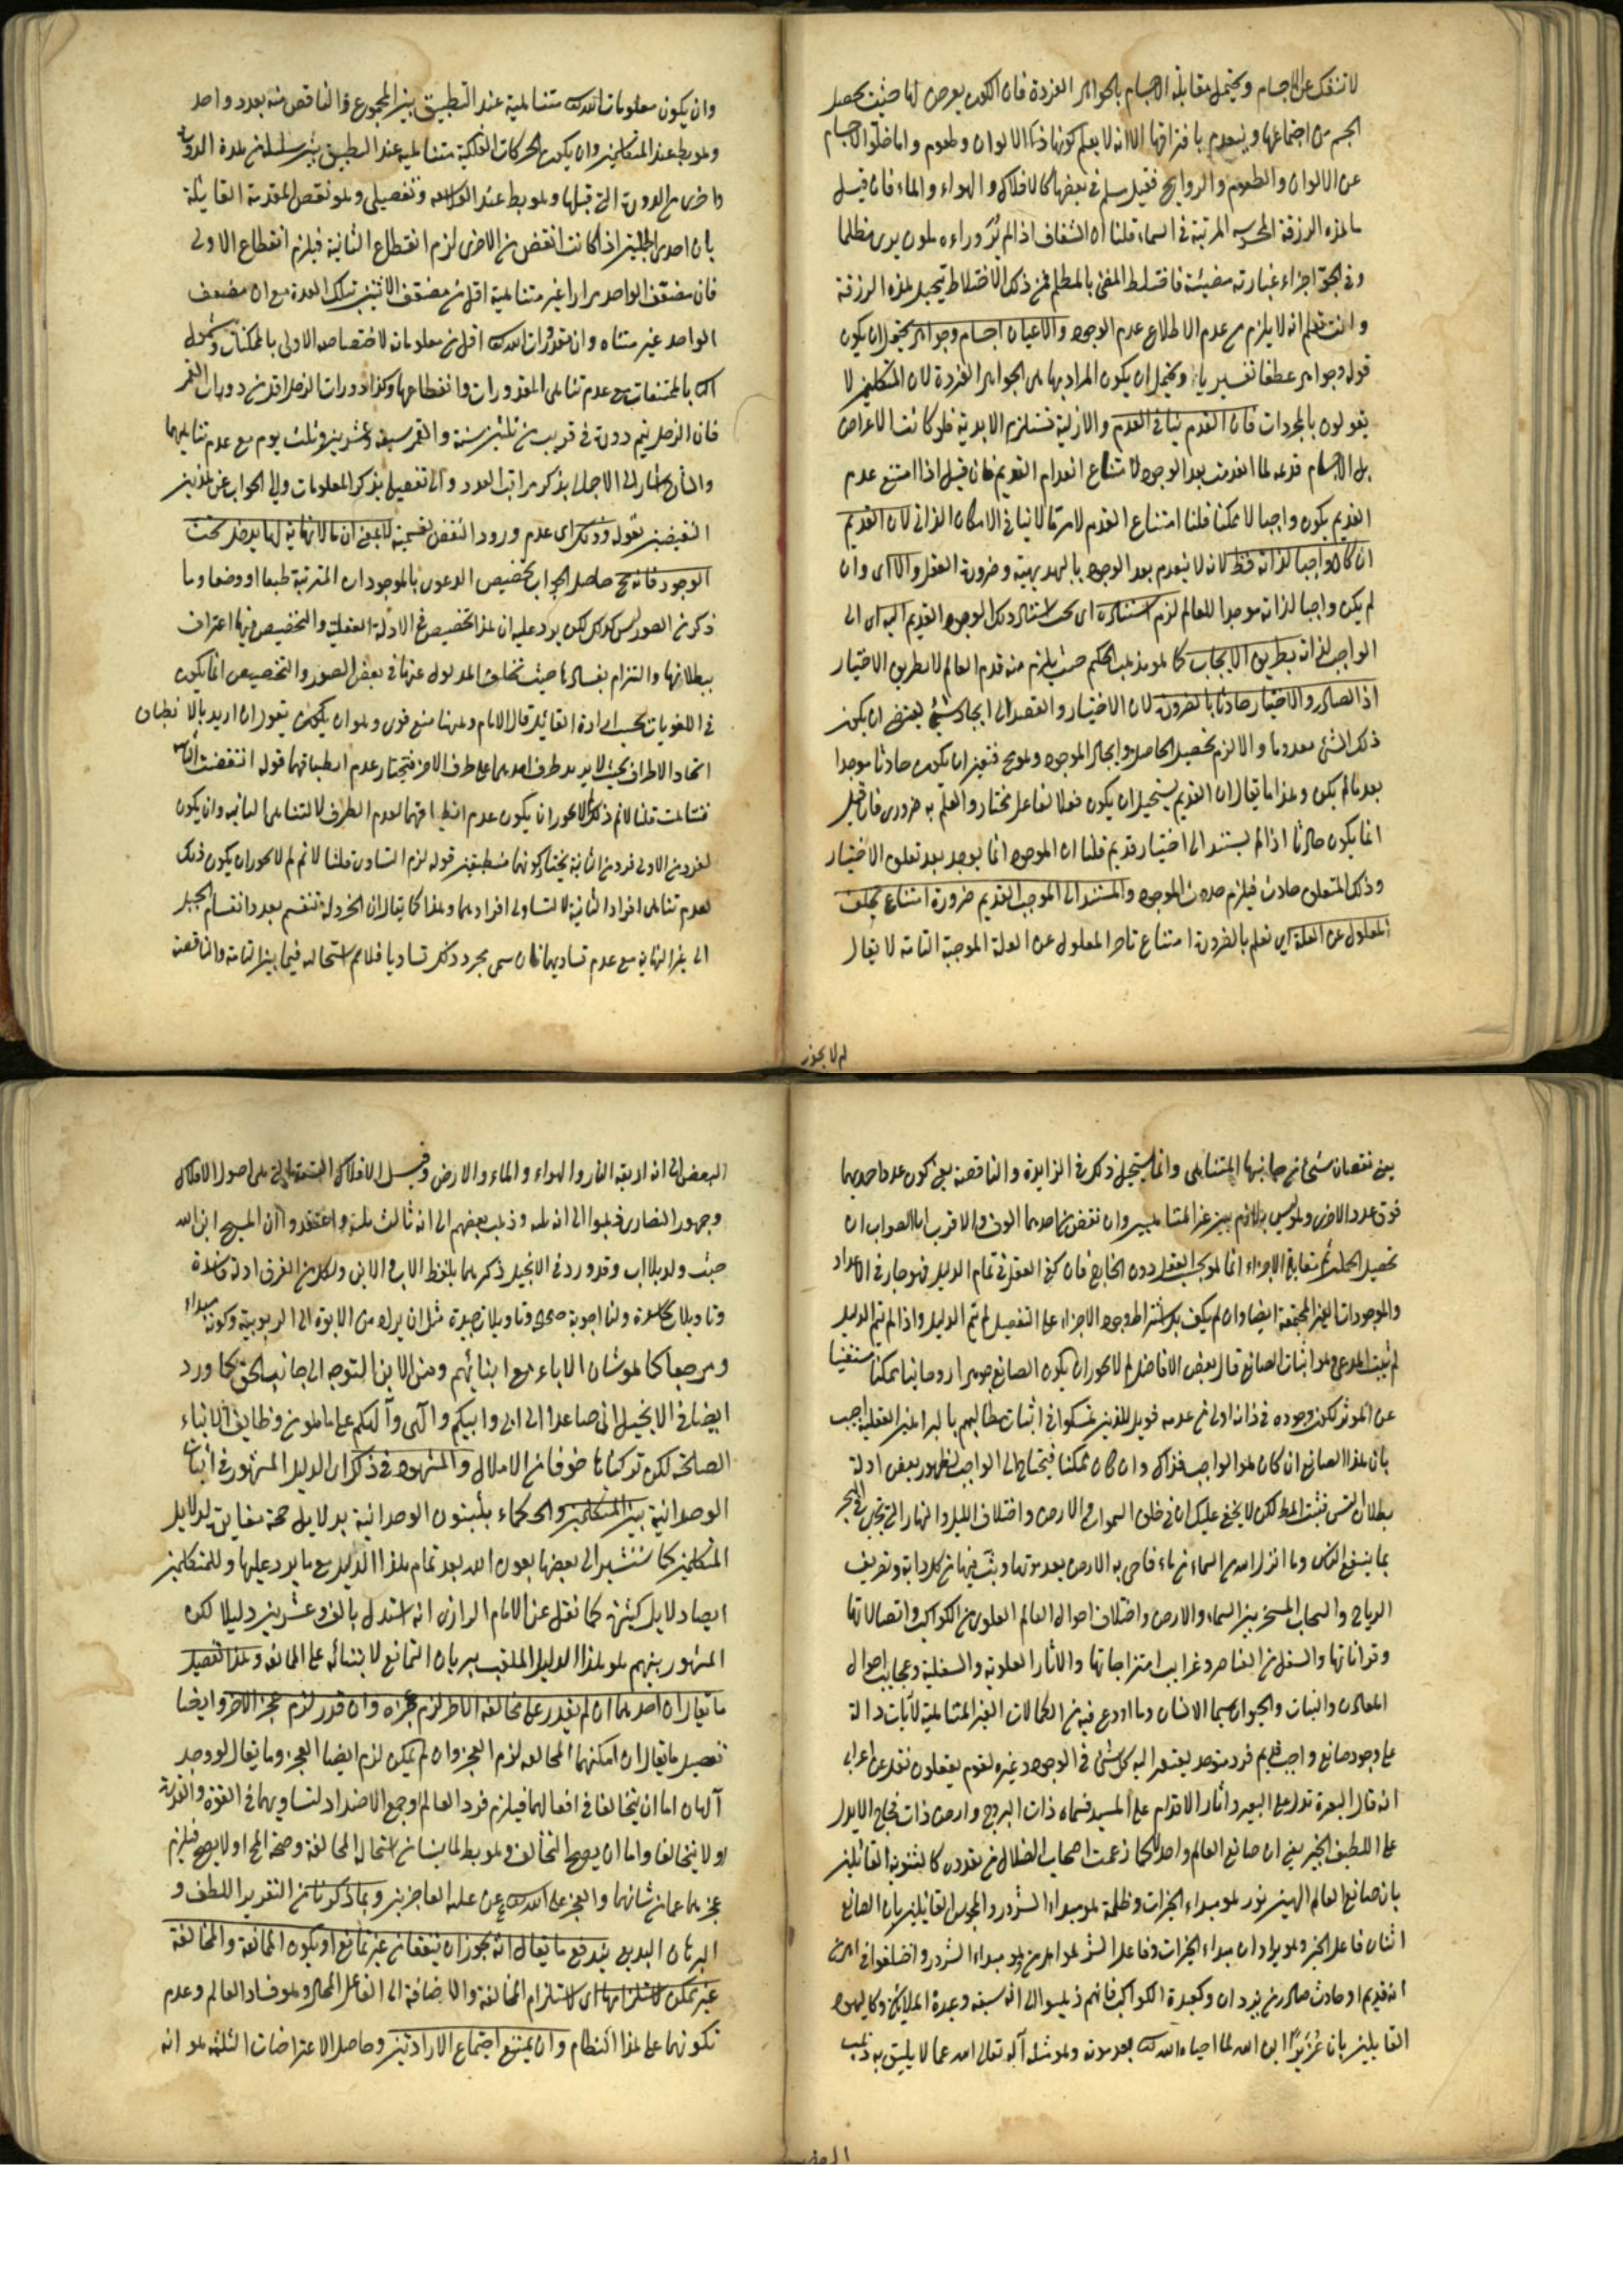 لا تنفك عن الاجسام ويحتمل مقابلة الاجسام بالجواهر الفردة فان الكون يعرض لها حيث يحصل
الجسم من اجتماعها وينعدم بافتراقها الا انه لا يعلم كونها ذا الالوان وطعوم واما خلو الاجسام
عن الالوان والطعوم والروايح فقيل مسلم في بعضها كالافلاك والهواء والماء فان قيل
ما هذه الزرقة المحسوسة المرتبة في السماء قلنا ان الشفاف اذا لم ير وراءه ملون يرى مظلما
وفي الجو اجزاء غبارية مضيئة فاختلط المضئ بالمظلم فمن ذلك الاختلاط تخيل هذه الزرقة
وانت تعلم انه لا يلزم من عدم الاطلاع عدم الوجود والاعيان اجسام وجواهر يحتمل ان يكون
قوله وجواهر عطفا تفسيريا ويحتمل ان يكون المراد بها هى الجواهر الفردة لان المتكلمين لا
يقولون بالمجردات فان القدم ينافى العدم والازلية تستلزم الابدية فلو كانت الاعراض
بل الاجسام قديمة لما انعدمت بعد الوجود لامتناع انعدام القديم فان قيل اذا امتنع عدم
القديم يكون واجبا لا ممكنا قلنا امتناع القدم لامر ما لا ينافى الامكان الذاتى لان القديم
ان كان واجبا لذاته فظ لانه لا ينعدم بعد الوجود بالبديهية وضرورة العقل والا اى وان
لم يكن واجبا لذاته موجدا للعالم لزم استناده اى استناد ذلك الوجود القديم اليه اى الى
الواجب لذاته بطريق الايجاب كما هو مذهب الحكيم حيث يلزم منه قدم العالم لا بطريق الاختيار
اذ الصادر والاختيار حادثا بالضرورة لان الاختيار والقصد الى ايجاد شئ يقتضى ان يكون
ذلك الشئ معدوما والا لزم تحصيل الحاصل وايجاد الموجود وهو مح فتعين ان يكون حادثا موجدا
بعد ما لم يكن وهذا ما يقال ان القديم يستحيل ان يكون فعلا لفاعل مختار والعلم به ضرورى فان قيل
انما يكون حادثا اذا لم يستند الى اختيار قديم قلنا ان الموجود انما يوجد بعد تعلق الاختيار
وذلك المتعلق حادث فيلزم حدوث الموجود والمستند الى الموجب القديم ضرورة امتناع تخلف
المعلول عن العلة اى نعلم بالضرورة امتناع تاخر المعلول عن العلة الموجبة التامة لا يقال
لم لا يجوز
وان يكون معلومات الله متناهية عند التطبيق بين المجموع والناقص منه بعدد واحد
وهو بط عند المتكلمين وان يكون الحركات الفلكية متناهية عند التطبيق بين سلسلة من هذه الدورة
واخرى من الدورة التى قبلها وهو بط عند الفلاسفة وتفصيلى وهو نقص المقدمة القايلة
بان احدى الجملتين اذا كانت انقص من الاخرى لزم انقطاع الثانية فيلزم انقطاع الاولى
فان مضعف الواحد مرارا غير متناهية اقل من مضعف الاثنين تلك العدة مع ان مضعف
الواحد غير متناه وان مقدورات الله اقل من معلوماته لاختصاص الاولى بالممكنات وشمول
الثانية بالممتنعات مع عدم تناهى المقدورات وانقطاعها وكذا دورات الزحل اقل من دورات القمر
فان الزحل يتم دورة في قريب من ثلثين سنة والقمر سبعة وعشرين وثلث يوم مع عدم تناهيهما
والشارح اشار الى الاجمالى بذكر مراتب العدد والى تفصيلى بذكر المعلومات والى الجواب عن هذين
النقيضين بقوله وذلك اى عدم ورود النقض لقسمية لا بمعنى ان ما لا نهاية لهما يدخل تحت
الوجود فانه مح حاصل الجواب تخصيص الدعوى بالموجودات المترتبة طبعا او وضعا وما
ذكر من الصور ليس كذلك لكن يرد عليه ان هذا تخصيص في الادلة العقلية والتخصيص فيها اعتراف
ببطلانها والتزام بفسادها حيث تخلف المدلول عنها في بعض الصور والتخصيص انما يكون
في اللغويات بحسب ارادة القائل قال الامام وههنا منع قوى وهو ان يقول ان اريد بالانطباق
اتحاد الاطراف بحيث لا يزيد طرف احدهما على طرف الاخر فنختار عدم انطباقهما قوله انقضت الثانية
فتناهت قلنا لا نم ذلك لم لا يجوز ان يكون عدم انطباقهما لعدم الطرف لا لتناهى الثانية وان يكون
لفرد من الاولى فرد من الثانية يختار كونهما منطبقين قوله لزم التساوى قلنا لا نم لم لا يجوز ان يكون ذلك
لعدم تناهى افراد الثانية لا لتساوى افرادهما وهذا كما يقال ان الخردلة تنقسم بعدد انقسام الجبل
الى غير النهاية مع عدم تساويهما فان سمى مجرد ذلك تساويا فلا نم استحالته فيما بين التامة والناقصة
بمعنى نقصان شئ من جانبها المتناهى وانما يستحيل ذلك في الزايدة والناقصة بمعنى كون عدد احديهما
فوق عدد الاخرى وليس بلازم بين غير المتناهيين وان نقص من احدهما الوف والاقرب الى الصواب ان
تحصيل الجملتين ثم تقابل الاجزاء انما هو بحسب العقل دون الخارج فان كفى العقل في تمام الدليل فهو جار في الاعداد
والموجودات الغير المجتمعة ايضا وان لم يكف بل اشتراط وجود الاجزاء على التفصيل لم يتم الدليل واذا لم يتم الدليل
لم يثبت المدعى وهو اثبات الصانع قال بعض الافاضل لم لا يجوز ان يكون الصانع جوهرا روحانيا ممكنا مستغنيا
عن المؤثر لكون وجوده في ذاته اولى من عدمه فويل للذين تمسكوا في اثبات مطاليبهم بالبراهين العقلية اجيب
بان هذا الصانع ان كان هو الواجب فذاك وان كان ممكنا فيحتاج الى الواجب لظهور بعض ادلة
بطلان التس فثبت المط لكن لا يخفى عليك ان في خلق السموات والارض واختلاف الليل والنهار التى تجرى في البحر
بما ينفع الناس وما انزل الله من السماء من ماء فاحى به الارض بعد موتها وبث فيها من كل دابة وتصريف
الرياح والسحاب المسخر بين السماء والارض واختلاف احوال العالم العلوى من الكواكب واتصالاتها
وقراناتها والسفلى من العناصر وغرايب امتزاجاتها والاثار العلوية والسفلية وعجايب احوال
المعادن والنبات والحيوان سيما الانسان وما اودع فيه من الكمالات الغير المتناهية لآيات دالة
على وجود صانع واجب قديم فرد متوحد يفتقر اليه كل شئ في الوجود وغيره لقوم يعقلون نقل عن اعرابى
انه قال البعرة تدل على البعير واثار الاقدام على المسير فسماء ذات البروج وارض ذات فجاج الا يدل
على اللطيف الخبير يعنى ان صانع العالم واحد لا كما زعمت اصحاب الضلال من تعدده كالثنوية القائلين
بان صانع العالم الهين نور هو مبداء الخيرات وظلمة هو مبداء الشرور والمجوس القائلين بان الصانع
اثنان فاعل الخير وهو يزدان مبداء الخيرات وفاعل الشر هو اهرمن هو مبداء الشرور واختلفوا في اهرمن
انه قديم او حادث صادر من يزدان وكعبدة الكواكب فانهم ذهبوا الى انه سبعة وعبدة الملائكة وكاليهود
القايلين بان عزيرا ابن الله لما احياه الله بعد موته وهو مثله آله تعالى الله عما لا يليق به ذهب
البعض
البعض الى انه اربعة النار والهواء والماء والارض وقيل الافلاك التسعة التى هى اصول الافلاك
وجمهور النصارى ذهبوا الى انه ثلثة وذهب بعضهم الى انه ثالث ثلثة واعتقدوا ان المسيح ابن الله
حيث ولد بلا اب وقد ورد في الانجيل ذكرهما بلفظ الاب والابن ولكل من الفرق ادلة فاسدة
وتاويلات كاسدة ولنا اجوبة صحيحة وتاويلات جيدة مثل ان يراد من الابوة الى الربوبية وكونه مبداء
ومرجعا كما هو شان الاباء مع ابنائهم ومن الابن التوجه الى جانب الحق كما ورد
ايضا في الانجيل انى صاعد الى ابى وابيكم والهى وآلهكم على ما هو من وظايف الانبياء
الصالحة لكن تركناها خوفا من الاملال والمشهور في ذلك اى الدليل المشهور في اثبات
الوحدانية بين المتكلمين والحكماء يثبتون الوحدانية بدلايل جمة مغايرة لدلايل
المتكلمين كما سنشير الى بعضها بعون الله بعد تمام هذا الدليل مع ما يرد عليها وللمتكلمين
ايضا دلايل كثيرة كما نقل عن الامام الرازى انه استدل بالف وعشرين دليلا لكن
المشهور بينهم هو هذا الدليل الملقب ببرهان التمانع لابتنائه على الممانعة وهذا تفصيل
ما يقال ان احدهما ان لم يقدر على مخالفة الاخر لزم عجزه وان قدر لزم عجز الاخر وايضا
تفصيل ما يقال ان امكنهما المخالفة لزم العجز وان لم يمكن لزم ايضا العجز وما يقال لو وجد
آلهان اما ان يتخالفا في افعالهما فيلزم فساد العالم وجمع الاضداد لتساويهما في القوة والقدرة
او لا يتخالفا واما ان يصح التخالف وهو بط لما بينا من استحالة المخالفة وصحة المح او لا يصح فيلزم
عجزهما عما من شانهما والعجز على الله عن علة العاجزين وبما ذكرنا من التقرير اللطيف و
البرهان البديع يندفع ما يقال انه يجوز ان يتفقا من غير تمانع او يكون الممانعة والمخالفة
غير ممكن لاستلزامها اى لاستلزام المخالفة والاضافة الى الفاعل المحال وهو فساد العالم وعدم
تكونهما على هذا النظام وان يمتنع اجتماع الارادتين وحاصل الاعتراضات الثلثة هو انه